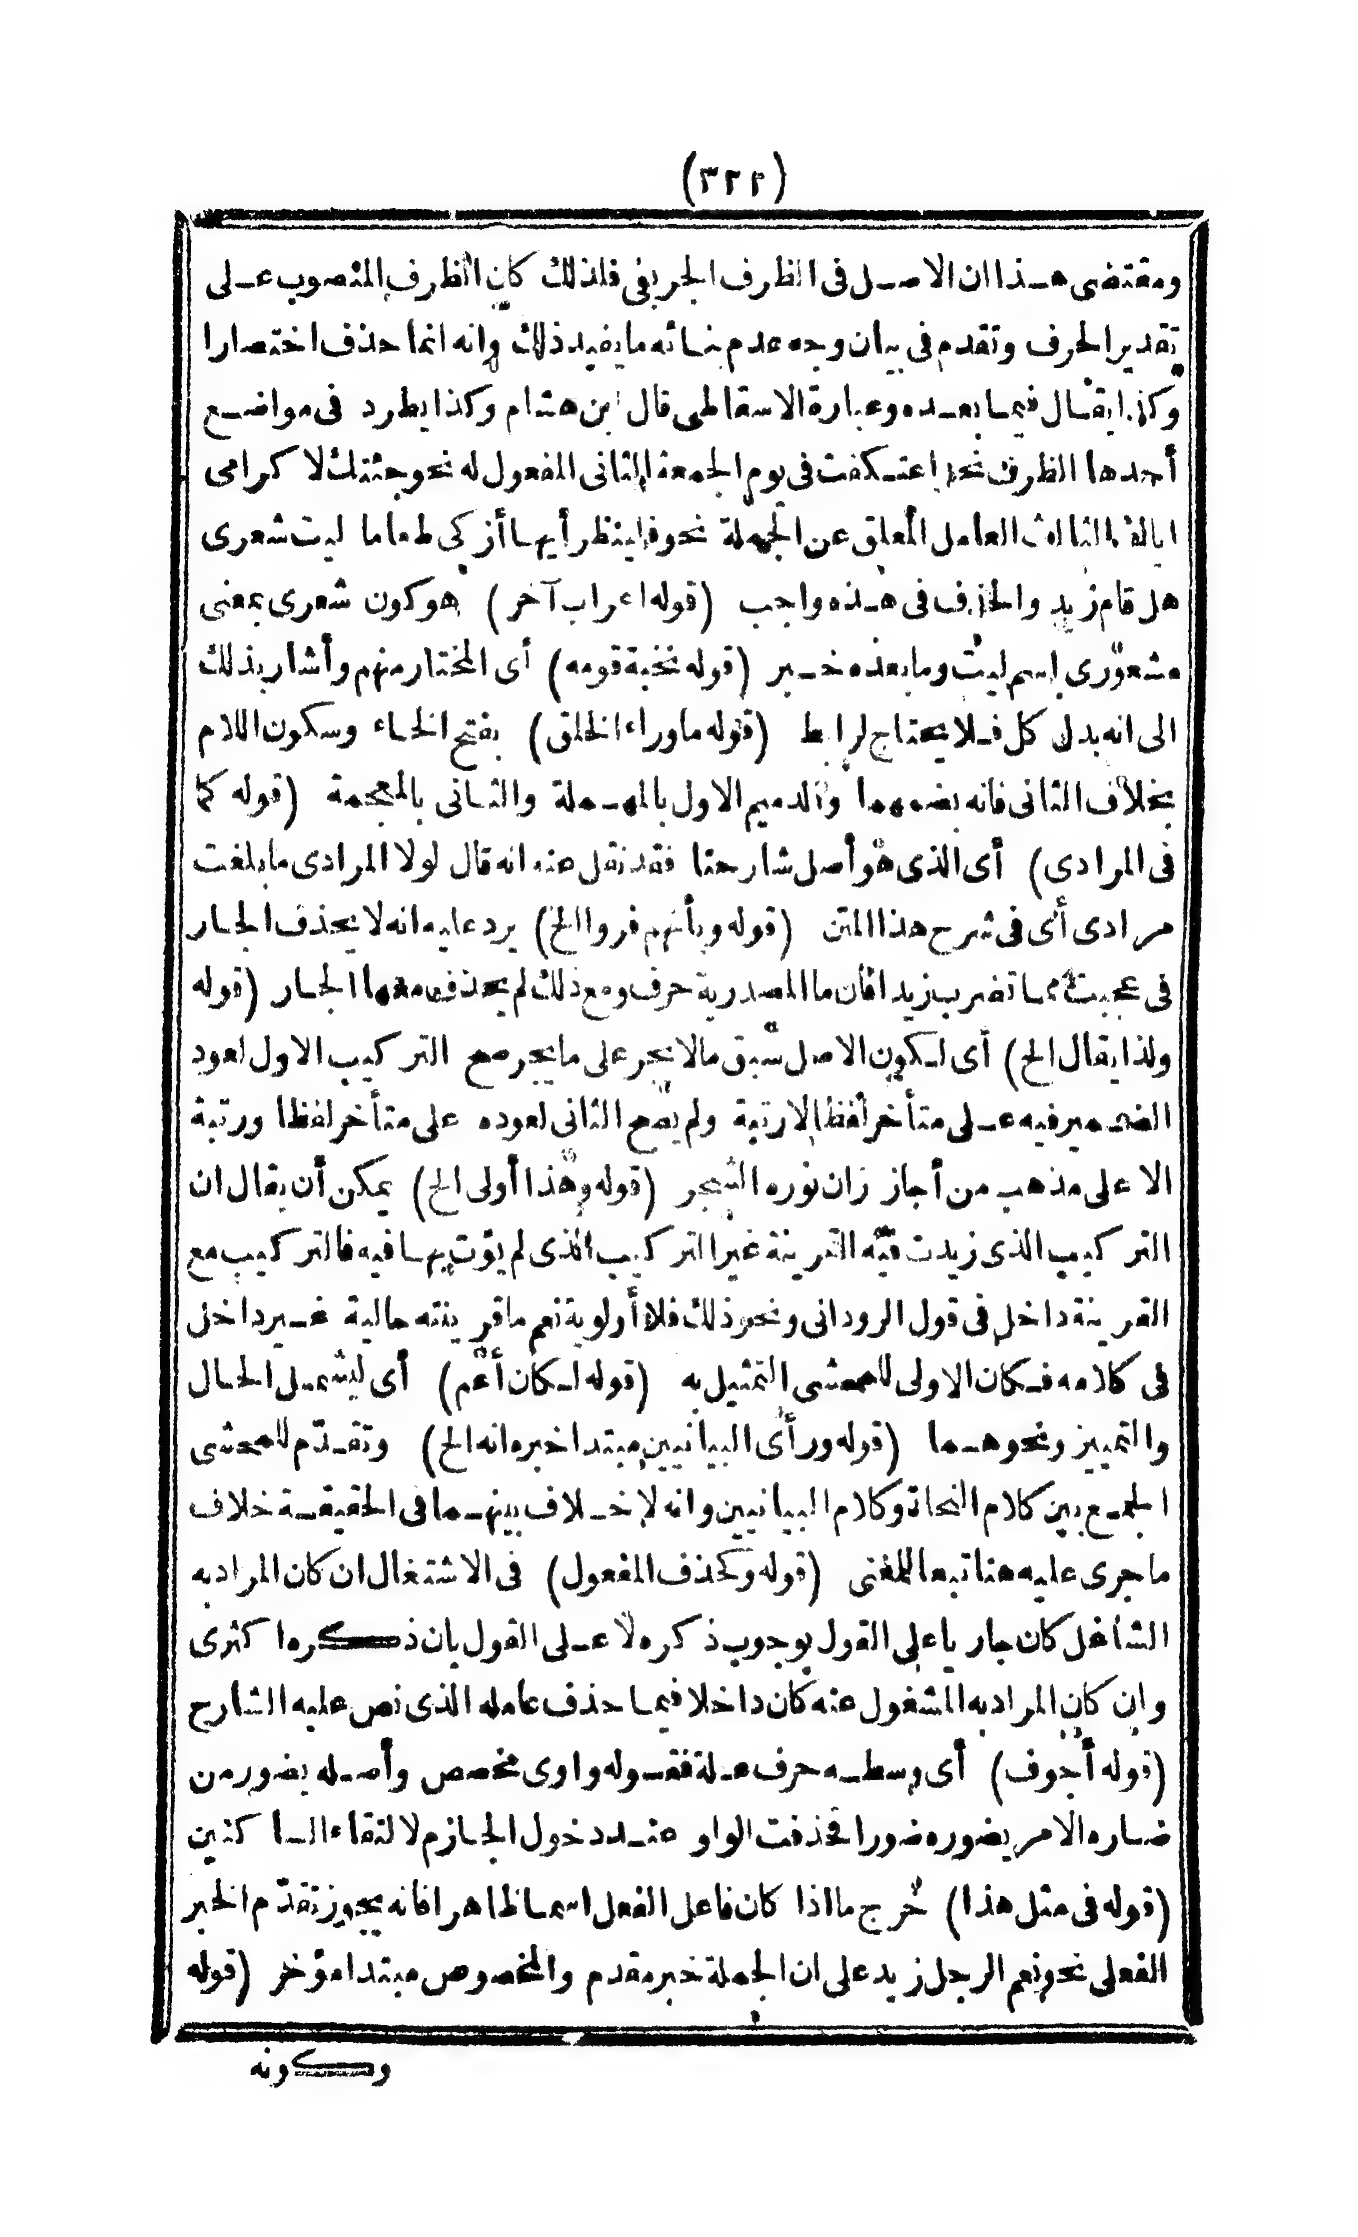 (٣٢٢)
ومقتضى هذا ان الاصل فى الظرف الجر بفى فلذلك كان الظرف المنصوب على
تقدير الحرف وتقدم فى بيان وجه عدم بنائه ما يفيد ذلك وانه انما حذف اختصارا
وكذا يقال فيما بعده وعبارة الاسقاطى قال ابن هشام وكذا يطرد فى مواضع
أحدها الظرف نحو اعتكفت فى يوم الجمعة الثانى المفعول له نحو جئتك لا كرامى
اياك الثالث العامل المعلق عن الجملة نحو فلينظر أيها أزكى طعاما ليت شعرى
هل قام زيد والحذف فى هذه واجب (قوله اعراب آخر) هو كون شعرى بمعنى
مشعورى اسم ليت وما بعده خبر (قوله نخبة قومه) أى المختار منهم وأشار بذلك
الى انه بدل كل فلا يحتاج لرابط (قوله ما وراء الخلق) بفتح الخاء وسكون اللام
بخلاف الثانى فانه بضمهما والدميم الاول بالمهملة والثانى بالمعجمة (قوله كما
فى المرادى) أى الذى هو أصل شارحنا فقد نقل عنه انه قال لولا المرادى ما بلغت
مرادى أى فى شرح هذا المتن (قوله وبأنهم فروا الخ) يرد عليه انه لا يحذف الجار
فى عجبت مما تضرب زيدا فان ما المصدرية حرف ومع ذلك لم يحذف معها الجار (قوله
ولذا يقال الخ) أى لكون الاصل سبق مالا يجر على ما يجر صح التركيب الاول لعود
الضمير فيه على متأخر لفظا لا رتبة ولم يصح الثانى لعوده على متأخر لفظا ورتبة
الا على مذهب من أجاز زان نوره الشجر (قوله وهذا أولى الخ) يمكن أن يقال ان
التركيب الذى زيدت فيه القرينة غير التركيب الذى لم يؤت بها فيه فالتركيب مع
القرينة داخل فى قول الرودانى ونحو ذلك فلا أولوية نعم ما قرينته حالية غير داخل
فى كلامه فكان الاولى للمحشى التمثيل به (قوله لكان أعم) أى ليشمل الحال
والتمييز ونحوهما (قوله ورأى البيانيين مبتدا خبره انه الخ) وتقدم للمحشى
الجمع بين كلام النحاة وكلام البيانيين وانه لا خلاف بينهما فى الحقيقة خلاف
ما جرى عليه هنا تبعا للمغنى (قوله وكحذف المفعول) فى الاشتغال ان كان المراد به
الشاغل كان جاريا على القول بوجوب ذكره لا على القول بان ذكره اكثرى
وان كان المراد به المشغول عنه كان داخلا فيما حذف عامله الذى نص عليه الشارح
(قوله أجوف) أى وسطه حرف علة فقوله واوى مخصص وأصله يضور من
ضاره الامر يضوره ضورا فحذفت الواو عند دخول الجازم لا لتقاء الساكنين
(قوله فى مثل هذا) خرج ما اذا كان فاعل الفعل اسما ظاهرا فانه يجوز تقدّم الخبر
الفعلى نحو نعم الرجل زيد على ان الجملة خبر مقدم والمخصوص مبتدا مؤخر (قوله
وكونه